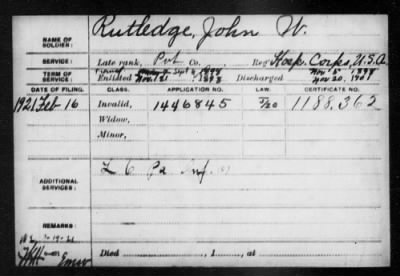 NAME OF SOLDIER: Rutledge, John W.
SERVICE: Late rank, Pvt Co. Reg't Hosp. Corps, U.S.A
TERM OF SERVICE: Enlisted Sept 1898 Discharged Nov. 5 1899
Nov. 21 1898 Nov 20, 1901
DATE OF FILING. CLASS. APPLICATION NO. LAW. CERTIFICATE NO.
1921 Feb 16 Invalid, 1446845 1188,362
Widow,
Minor,
ADDITIONAL SERVICES: L 6 Pa Inf.
REMARKS:
Died , 1 , at